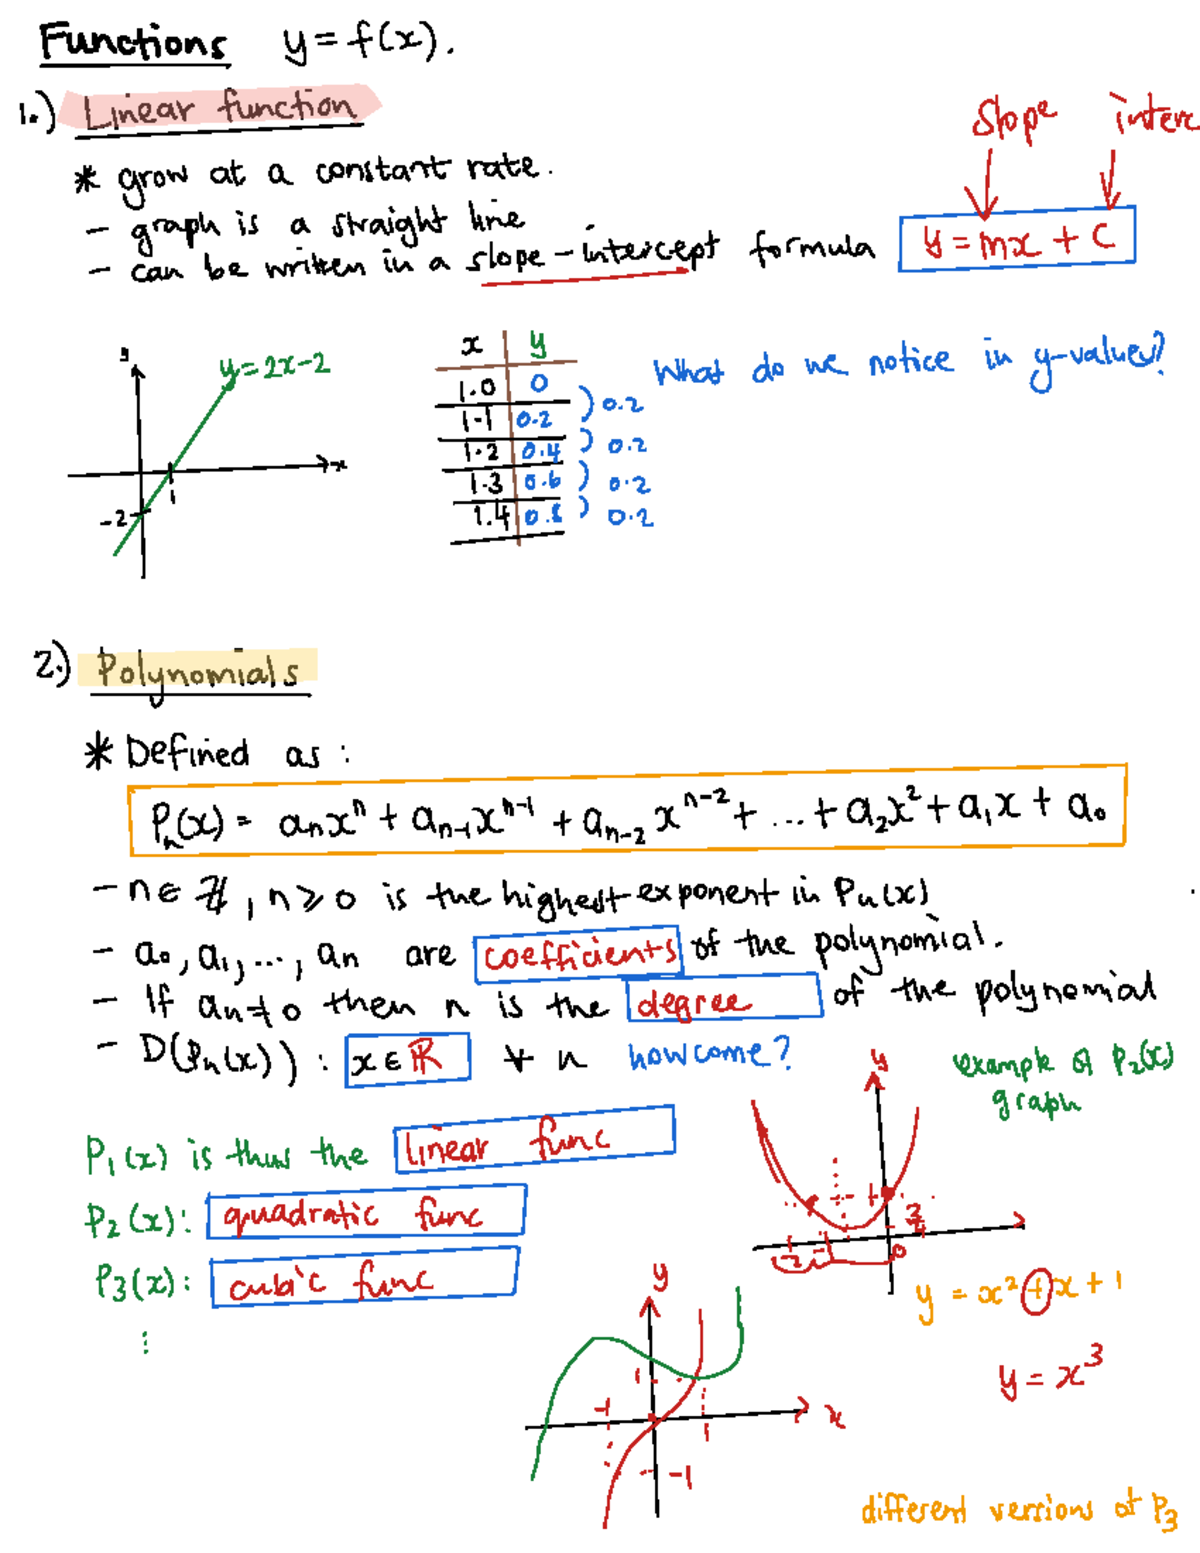 Functions y = f(x).
1.) Linear function
* grow at a constant rate.
- graph is a straight line
- can be written in a slope-intercept formula y = mx + c
slope interc
y = 2x-2
y
x
1
-2
x y
1.0 0
1.1 0.2
1.2 0.4
1.3 0.6
1.4 0.8
0.2
0.2
0.2
0.2
What do we notice in y-values?
2.) Polynomials
* Defined as :
Pₙ(x) = aₙxⁿ + aₙ₋₁xⁿ⁻¹ + aₙ₋₂xⁿ⁻² + ... + a₂x² + a₁x + a₀
- n ∈ ℤ, n ≥ 0 is the highest exponent in Pₙ(x)
- a₀, a₁, ..., aₙ are coefficients of the polynomial.
- If aₙ ≠ 0 then n is the degree of the polynomial
- D(Pₙ(x)) : x ∈ ℝ ∀ n how come?
example of P₂(x)
graph
P₁(x) is thus the linear func
P₂(x): quadratic func
P₃(x): cubic func
⋮
y
1
3/4
-2
-1
0
y = x² + x + 1
y = x³
y
1
-1
1
x
-1
different versions of P₃